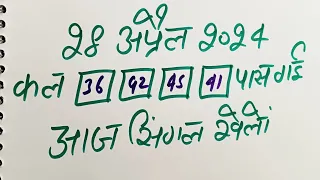 28 अप्रैल 2024
कल 36 42 45 41 पास गई
आज सिंगल खेलों